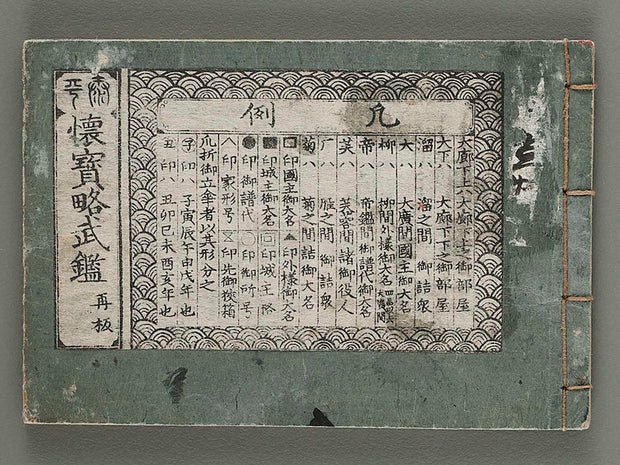 凡例
大廊下上ハ大廊下上之御部屋
大下ハ 大廊下下之御部屋
溜ハ 溜之間 御詰衆
大ハ 大廣間國主御大名
柳ハ 柳間外様御大名
帝ハ 帝鑑間御譜代御大名
芙ハ 芙蓉間諸御役人
厂ハ 雁之間 御詰衆
菊ハ 菊之間 詰御大名
印國主御大名 印外様御大名
印城主御大名 印城主格
印御譜代 印御所号
八印 家形号 印先御挾箱
爪折御立傘者以其形分之
子印ハ 子寅辰午申戌年也
丑印ハ 丑卯巳未酉亥年也
懐寶略武鑑 再板